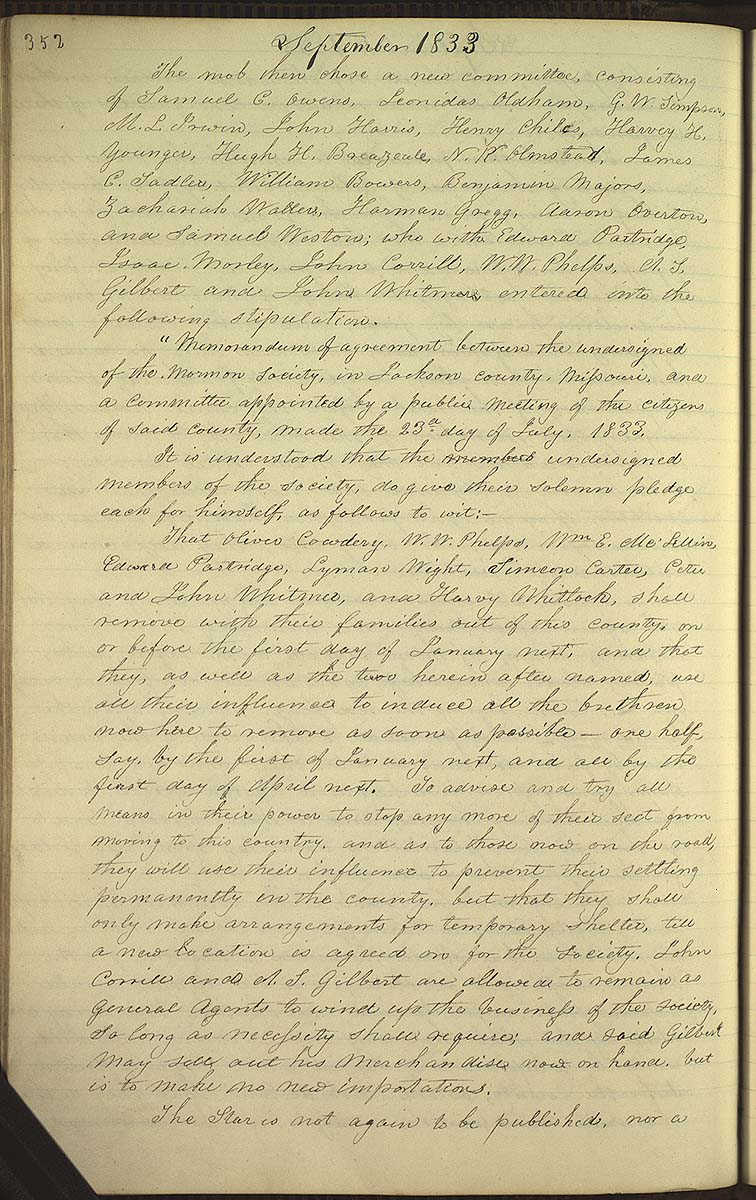 352
September 1833
The mob then chose a new committee, consisting
of Samuel C. Owens, Leonidas Oldham, G. W. Simpson,
M. L. Irwin, John Harris, Henry Chiles, Harvey H.
Younger, Hugh H. Breazeale, N. K. Olmstead, James
C. Sadler, William Bowers, Benjamin Majors,
Zachariah Waller, Harman Gregg, Aaron Overton,
and Samuel Weston; who with Edward Partridge,
Isaac Morley, John Corrill, W. W. Phelps, A. S.
Gilbert and John Whitmer, entered into the
following stipulation.
"Memorandum of agreement between the undersigned
of the Mormon Society, in Jackson county, Missouri, and
a committee appointed by a public meeting of the citizens
of said county, made the 23d day of July, 1833.
It is understood that the members undersigned
members of the society, do give their solemn pledge
each for himself, as follows to wit;—
That Oliver Cowdery, W. W. Phelps, Wm E. Mc'Lellin,
Edward Partridge, Lyman Wight, Simeon Carter, Peter
and John Whitmer, and Harvy Whitlock, shall
remove with their families out of this county, on
or before the first day of January next, and that
they, as well as the two herein after named, use
all their influence to induce all the brethren
now here to remove as soon as possible — one half,
say, by the first of January next, and all by the
first day of April next. To advise and try all
means in their power to stop any more of their sect from
moving to this country. and as to those now on the road,
they will use their influence to prevent their settling
permanently in the county, but that they shall
only make arrangements for temporary shelter, till
a new location is agreed on for the society. John
Corrill and A. S. Gilbert are allowed to remain as
General Agents to wind up the business of the society,
so long as necessity shall require; and said Gilbert
may sell out his Merchandise now on hand. but
is to make no new importations.
The Star is not again to be published, nor a